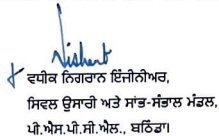 Nishant
ਵਧੀਕ ਨਿਗਰਾਨ ਇੰਜੀਨੀਅਰ,
ਸਿਵਲ ਉਸਾਰੀ ਅਤੇ ਸਾਂਭ-ਸੰਭਾਲ ਮੰਡਲ,
ਪੀ.ਐਸ.ਪੀ.ਸੀ.ਐਲ., ਬਠਿੰਡਾ।